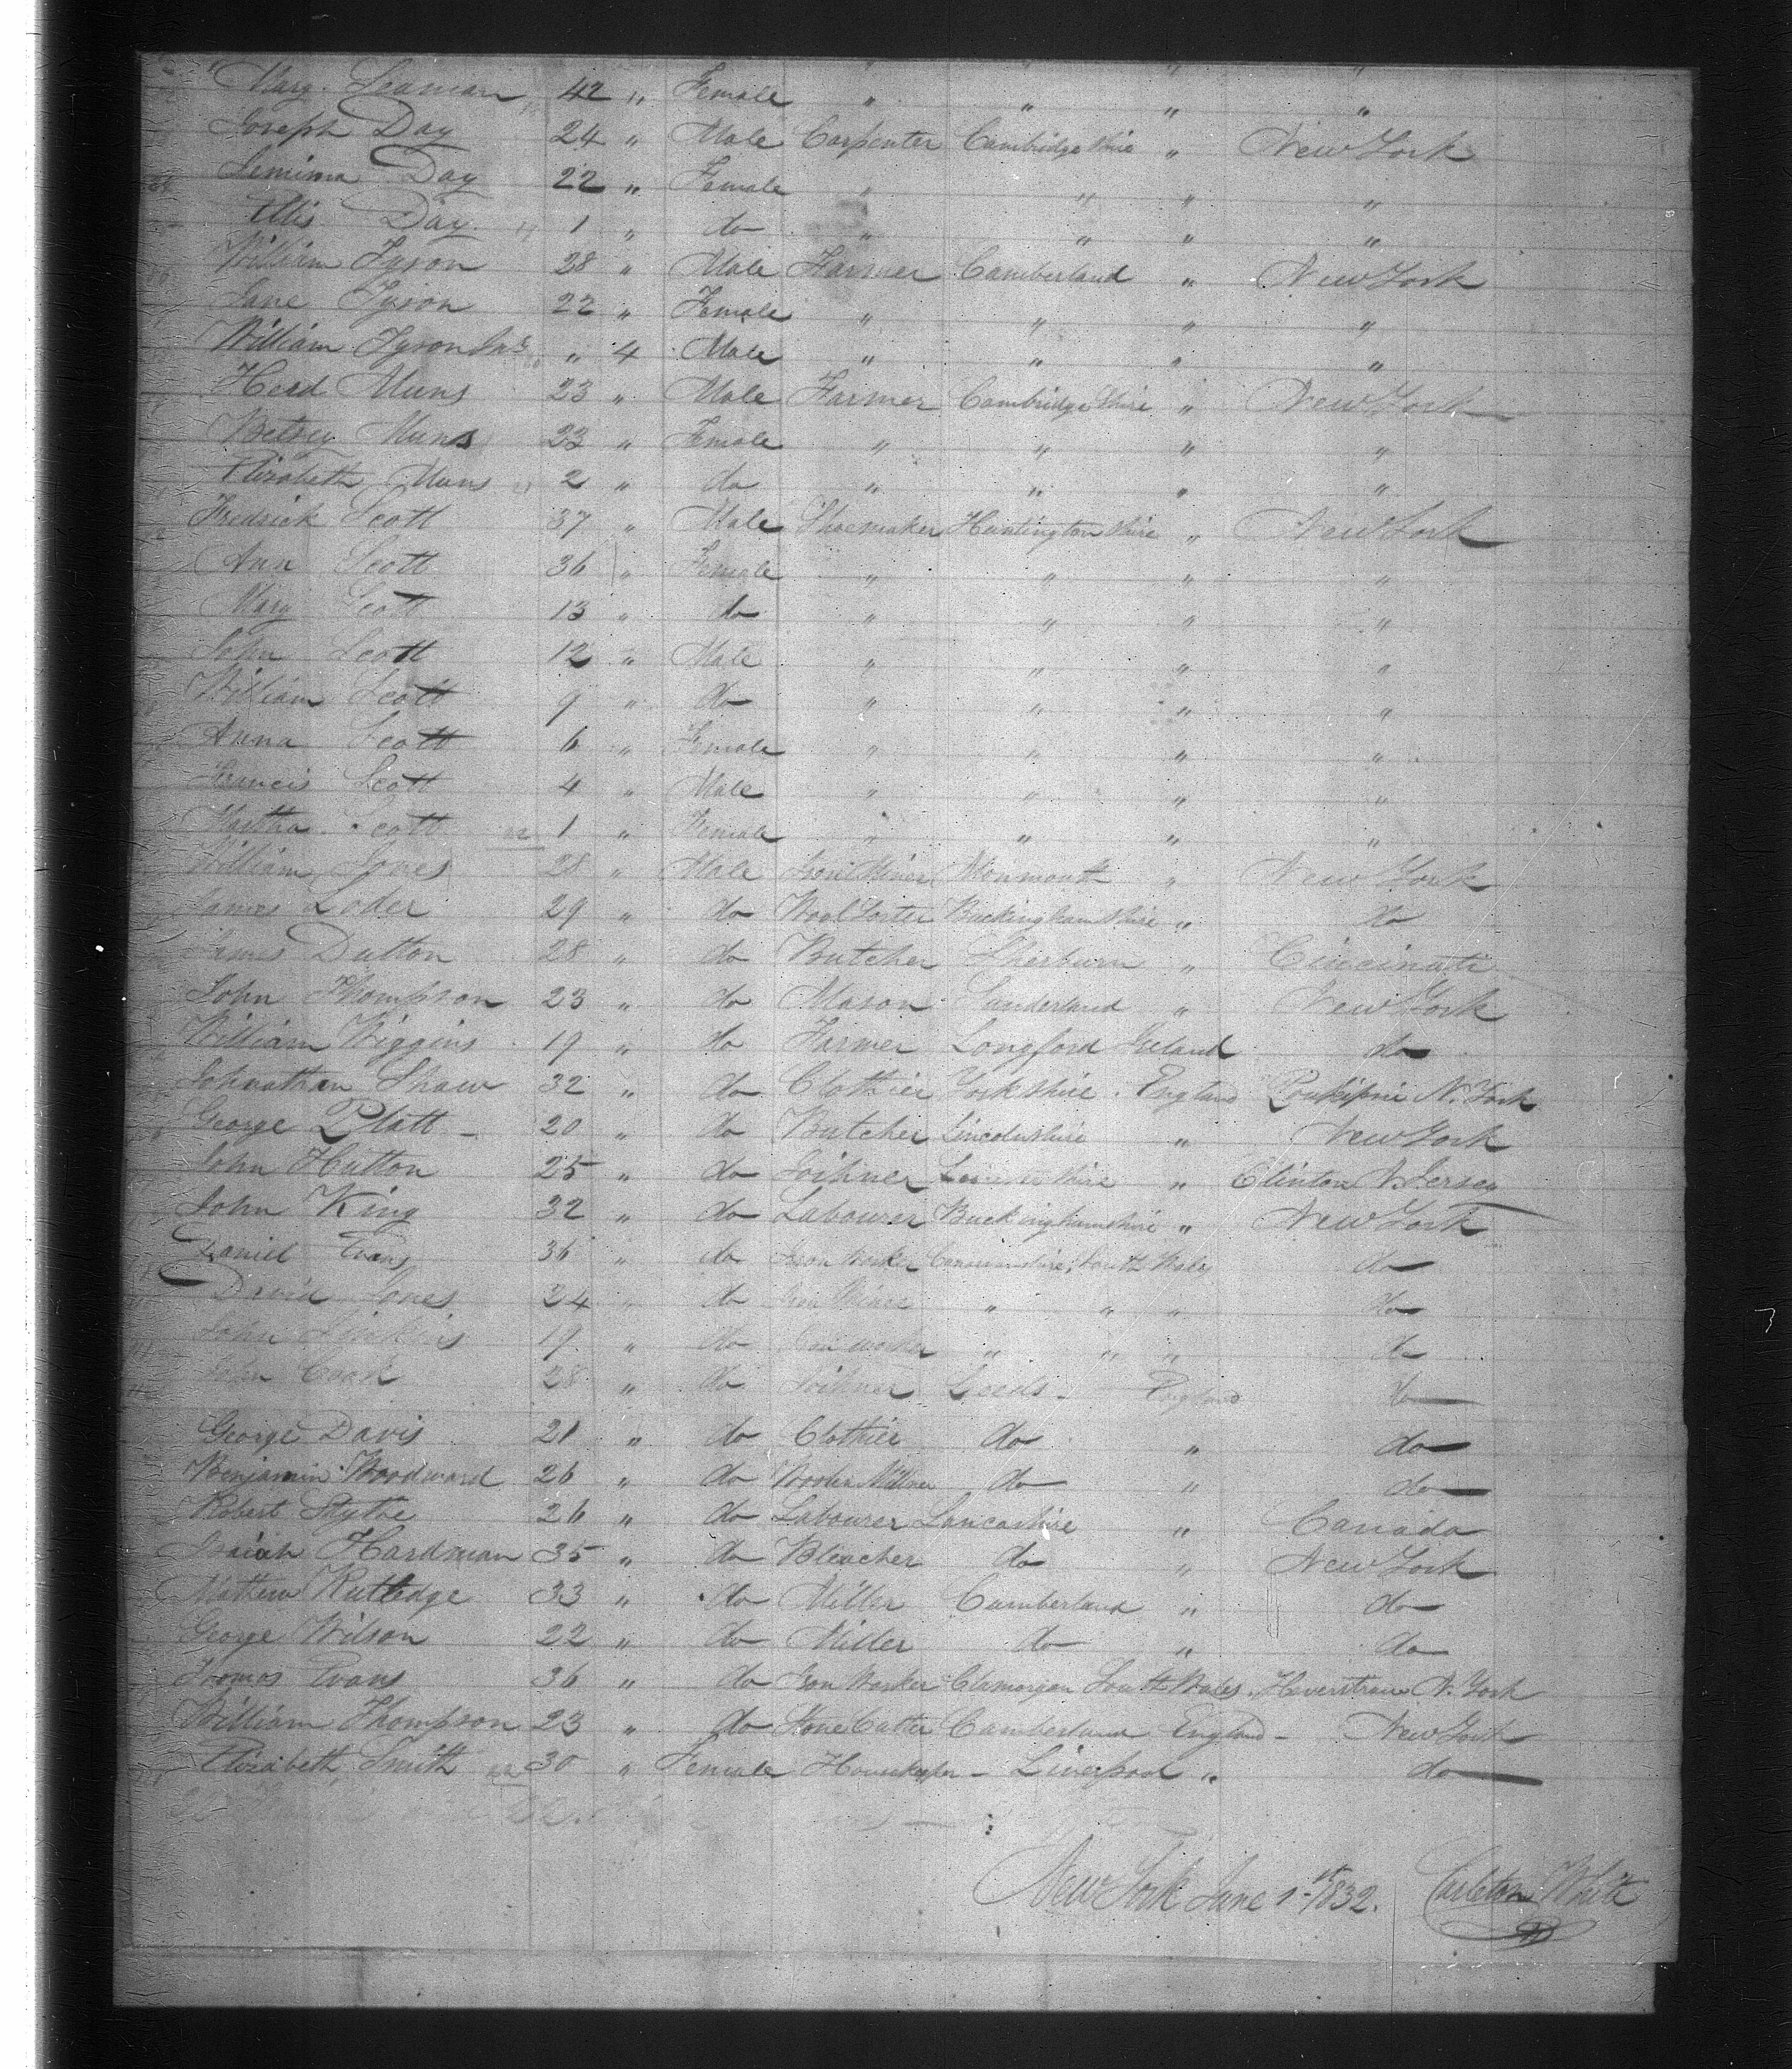 Mary Seaman 42 " Female " " " "
Joseph Day 24 " Male Carpenter Cambridgeshire " New York
Jemima Day 22 " Female " " " "
Day 1 " do " " " "
William Tyson 28 " Male Farmer Cumberland " New York
Jane Tyson 22 " Female " " " "
William Tyson Jnr " 4 Male " " " "
Herd Muns 23 " Male Farmer Cambridgeshire " New York
Betsey Muns 23 " Female " " " "
Elizabeth Muns 2 " do " " " "
Fredrick Scott 37 " Male Shoemaker Huntingtonshire " New York
Ann Scott 36 " Female " " " "
Mary Scott 13 " do " " " "
John Scott 12 " Male " " " "
William Scott 9 " do " " " "
Anna Scott 6 " Female " " " "
Francis Scott 4 " Male " " " "
Martha Scott 22 1 " Female " " " "
William Jones 28 " Male Iron Miner Monmouth " New York
James Loder 29 " do Wool Sorter Buckinghamshire " do
James Dutton 28 " do Butcher Sherburn " Cincinati
John Thompson 23 " do Mason Sunderland " New York
William Wiggins 19 " do Farmer Longford Ireland do
Johnathan Shaw 32 " do Clothier Yorkshire . England Poukipsie N. York
George Platt - 20 " do Butcher Lincolnshire " New York
John Hutton 25 " do Joihner " Clinton N. Jersey
John King 32 " do Labourer Buckinghamshire " New York
Daniel Evans 36 " do Iron Worker South Wales do
David Jones 24 " do Iron Miner " " " do
John 19 " do " " " do
John Cook 28 " do Joihner Leeds - England do
George Davis 21 " do Clothier do " do
Benjamin Woodward 26 " do do " do
Robert 26 " do Labourer Lancashire " Canada
Isaiah Hardman 35 " do Bleacher do " New York
Mathew Rutledge 33 " do Miller Cumberland " do
George Wilson 22 " do Miller do " do
Toomos Evans 36 " do Iron Worker Glamorgan South Wales Haverstraw N. York
William Thompson 23 " do Stone Cutter Cumberland England - New York
Elizabeth Smith 22 30 " Female Housekeeper - Liverpool " do
New York June 1st 1832. Carleton White